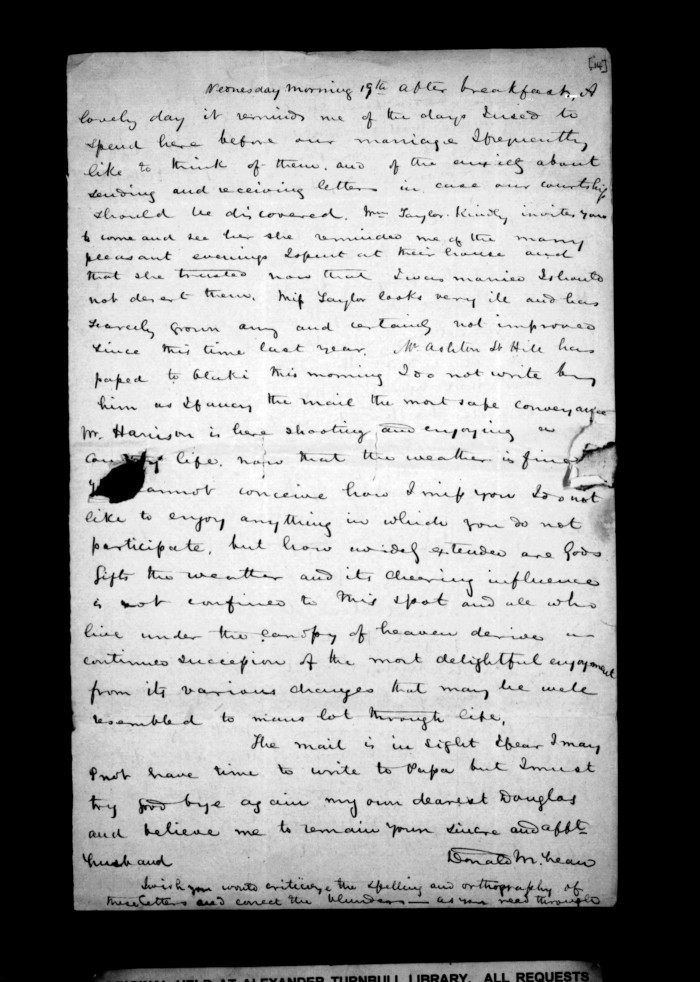 [14]
Wednesday morning 19th after breakfast. A
lovely day it reminds me of the days I used to
spend here before our marriage I frequently
like to think of them. and of the anxiety about
sending and receiving letters in case our courtship
should be discovered. Mrs Taylor kindly invites you
to come and see her she reminded me of the many
pleasant evenings I spent at their house and
that she trusted now that I was married I should
not desert them. Miss Taylor looks very ill and has
scarcely grown any and certainly not improved
since this time last year. Mr Ashton St Hill has
passed to Otuki this morning I do not write by
him as I fancy the mail the most safe conveyance
Mr. Harrison is here shooting and enjoying a
country life. now that the weather is fine
cannot conceive how I miss you I do not
like to enjoy anything in which you do not
participate, but how widely extended are Gods
Gifts the weather and its cheering influence
is not confined to this spot and all who
live under the canopy of heaven derive a
continued succession of the most delightful enjoyment
from its various changes that may be well
resembled to mans lot through life.
The mail is in sight I fear I may
not have time to write to Papa but I must
try good bye again my own dearest Douglas
and believe me to remain your sincere and affte
husband Donald McLean
I wish you would criticize the spelling and orthography of
these letters and correct the blunders — as you read through
ORIGINAL HELD AT ALEXANDER TURNBULL LIBRARY. ALL REQUESTS